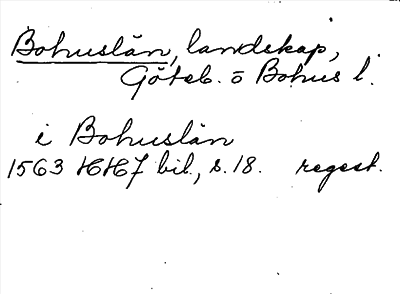 Bohuslän, landskap,
Göteb. o Bohus l.
i Bohuslän
1563 HH7 bil., s. 18. regest.